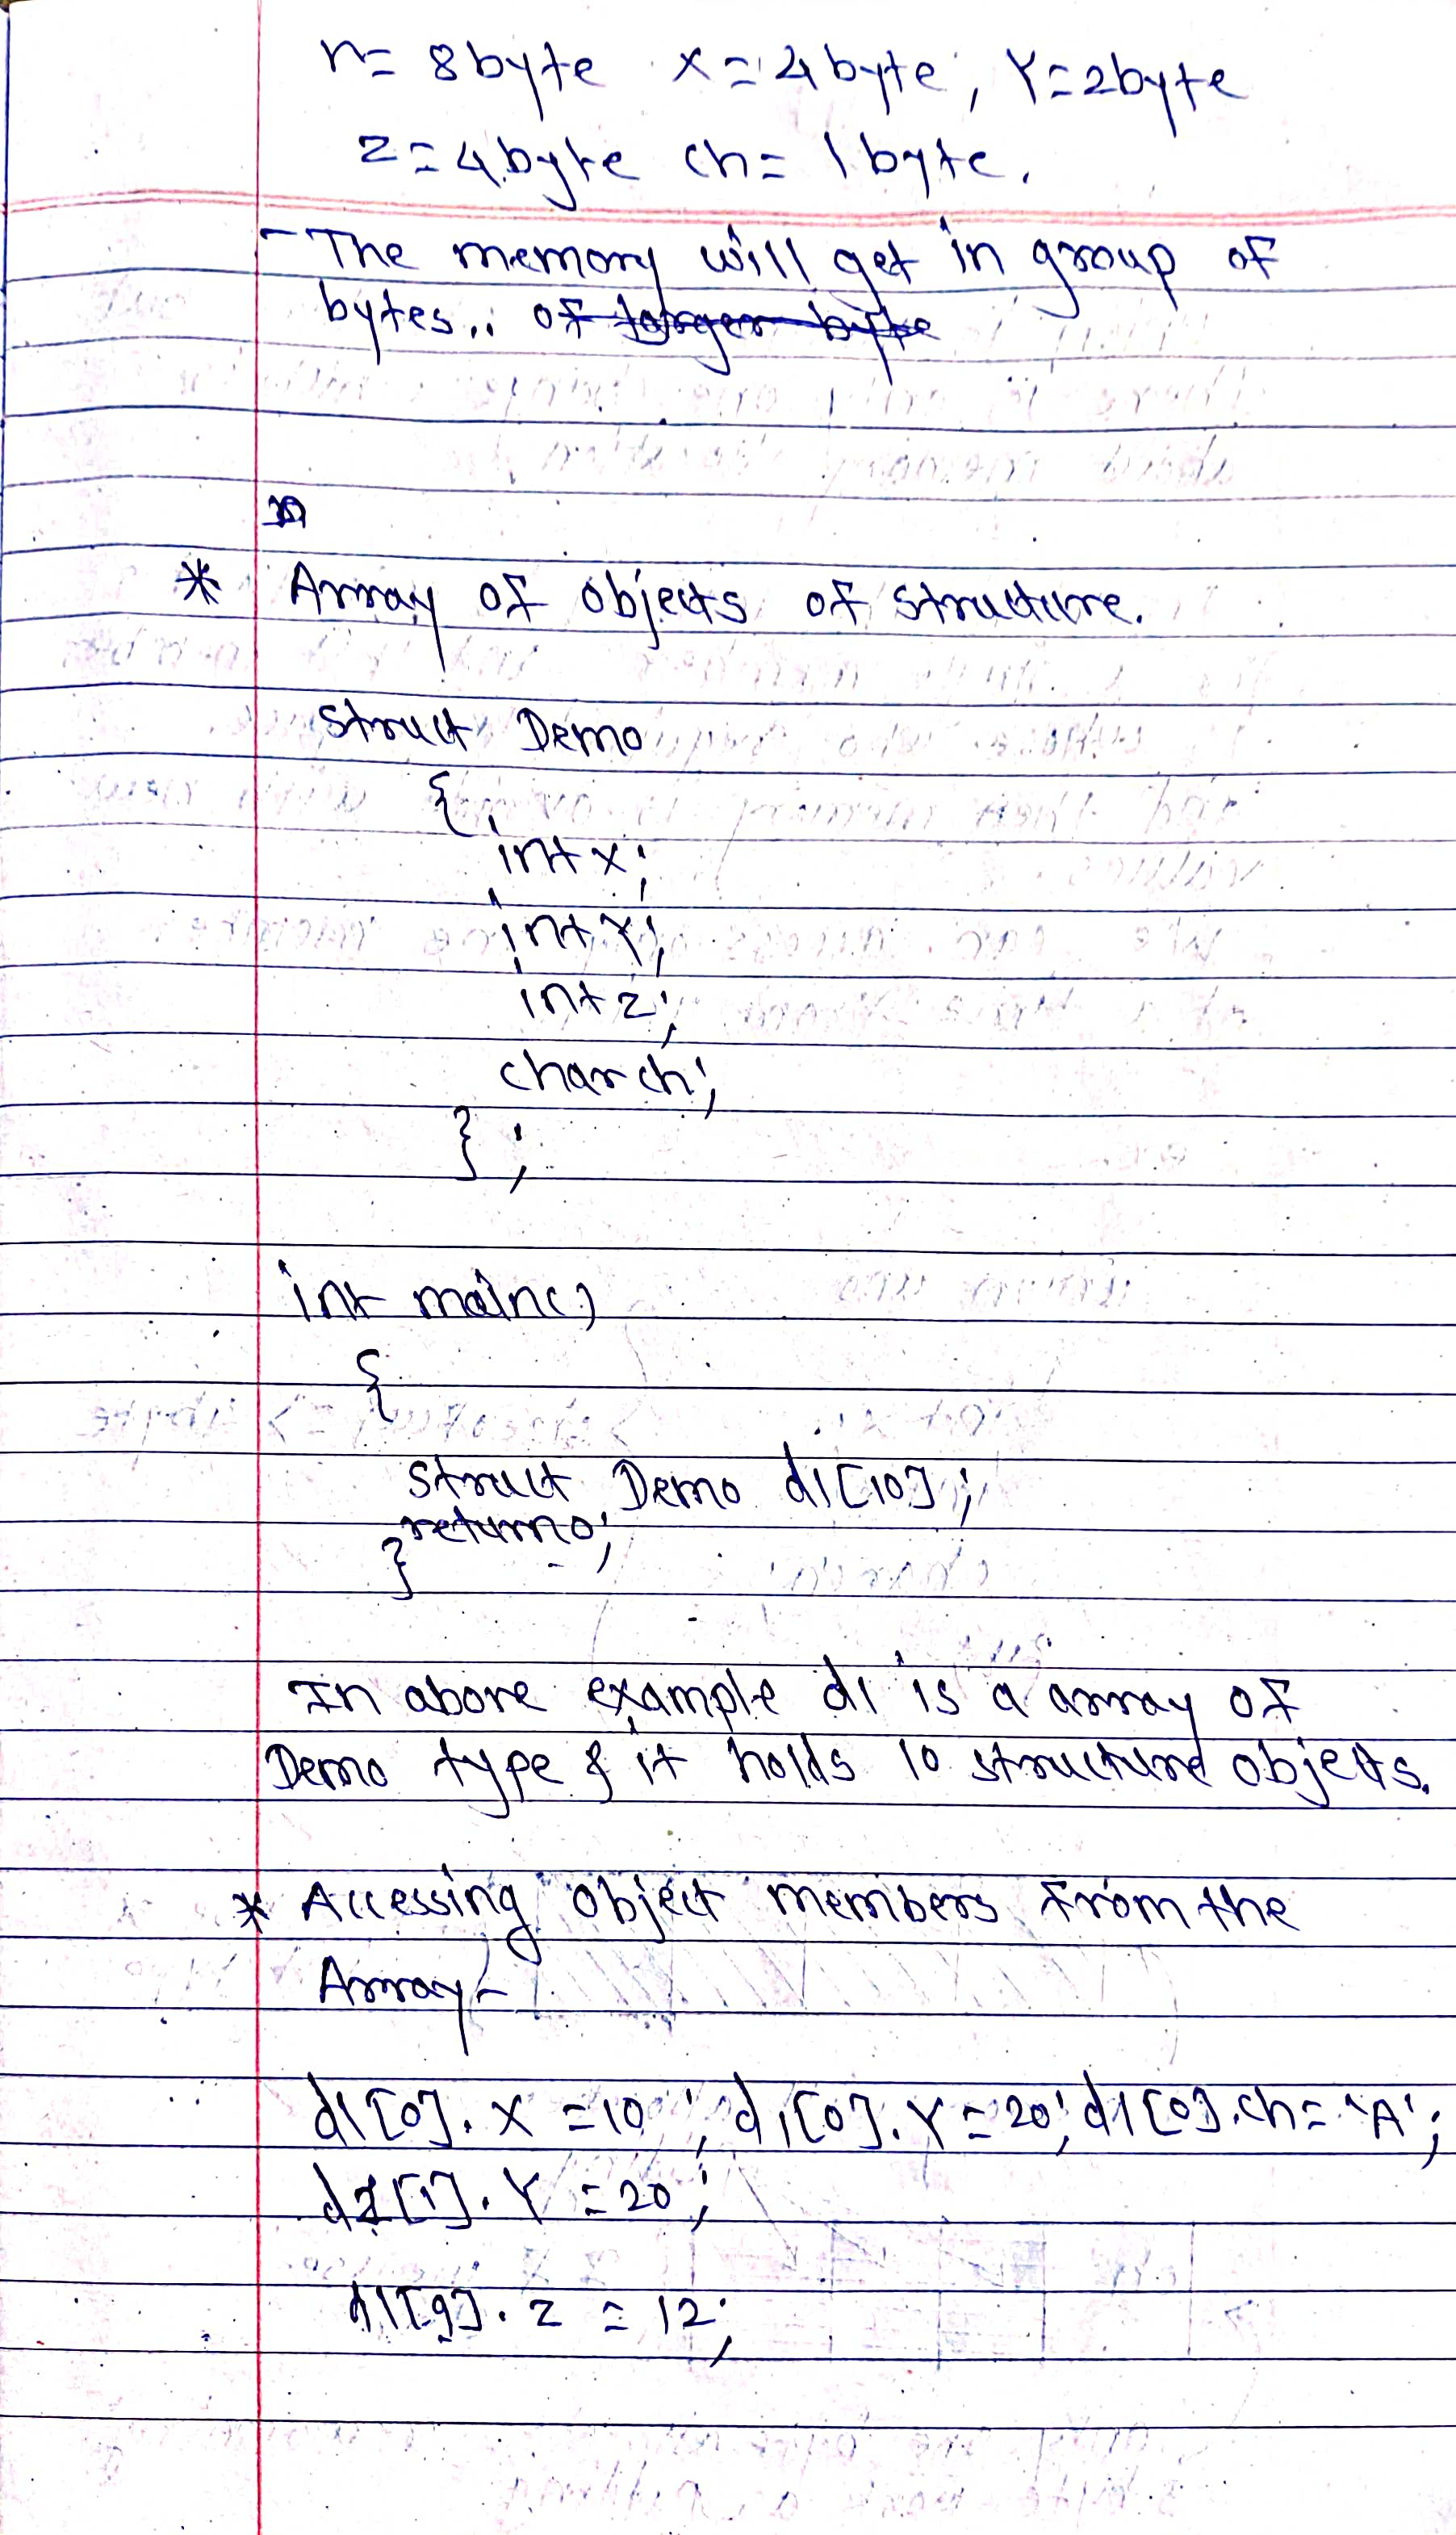 n= 8byte x=4byte, Y=2byte
z=4byte ch= 1byte.
- The memory will get in group of
bytes.. of larger byte
* Array of objects of structure.
struct Demo
{
int x;
int Y;
int z;
char ch;
};
int main()
{
struct Demo d1[10];
return 0;
}
In above example d1 is a array of
Demo type & it holds 10 structure objects.
* Accessing object members from the
Array-
d1[0].x =10; d1[0].Y=20; d1[0].ch= 'A';
d1[1].Y =20;
d1[9].z = 12;